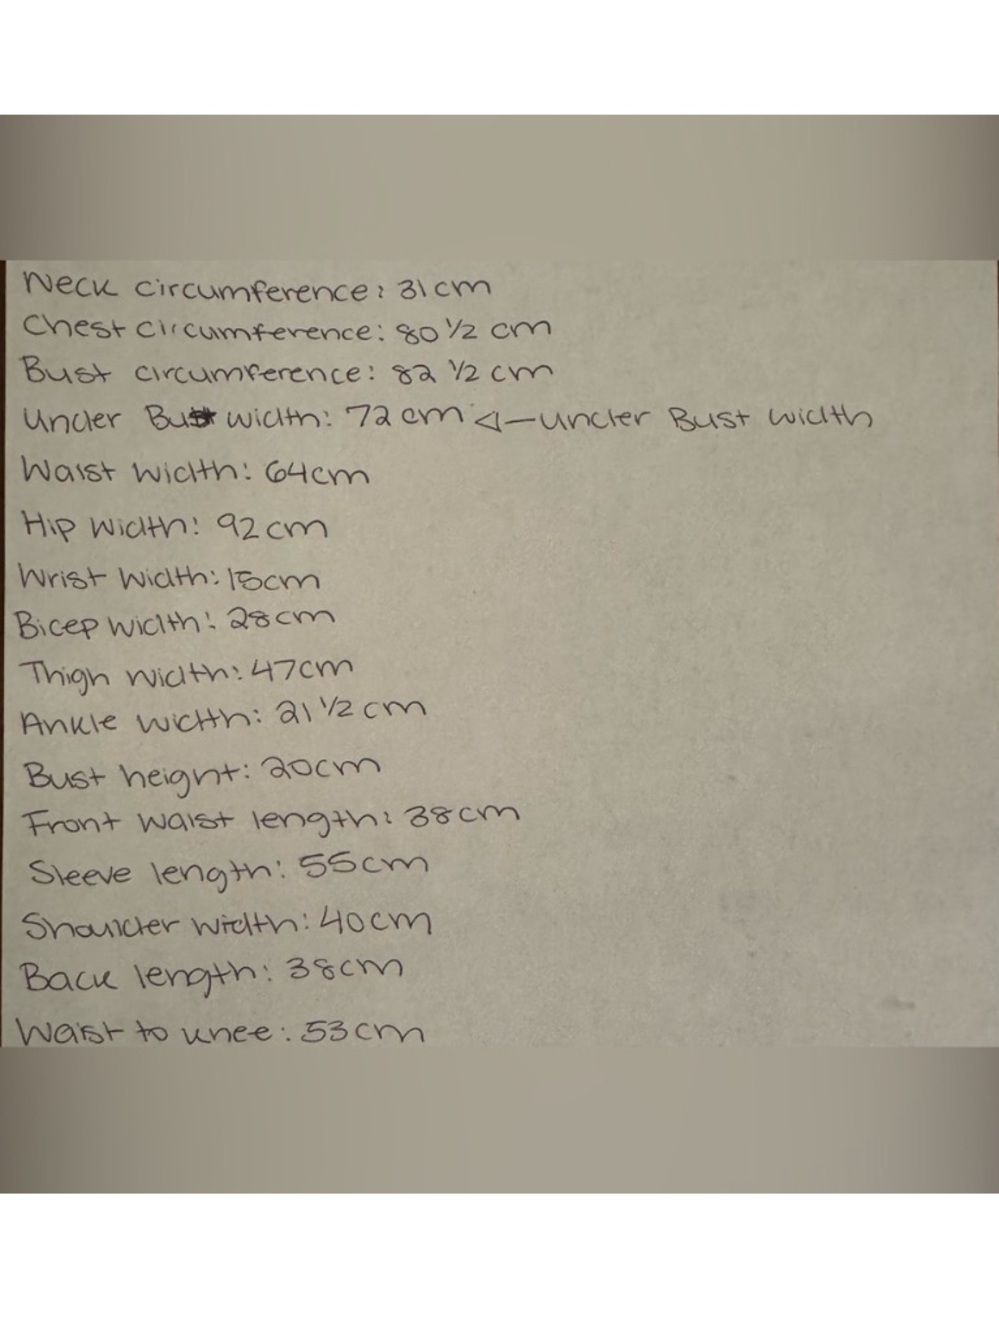 Neck circumference: 31cm
Chest circumference: 80 1/2 cm
Bust circumference: 82 1/2 cm
Under Bust width: 72cm ◁—under Bust width
Waist width: 64cm
Hip width: 92cm
Wrist width: 15cm
Bicep width: 28cm
Thigh width: 47cm
Ankle width: 21 1/2 cm
Bust height: 20cm
Front waist length: 38cm
Sleeve length: 55cm
Shoulder width: 40cm
Back length: 38cm
Waist to knee: 53cm